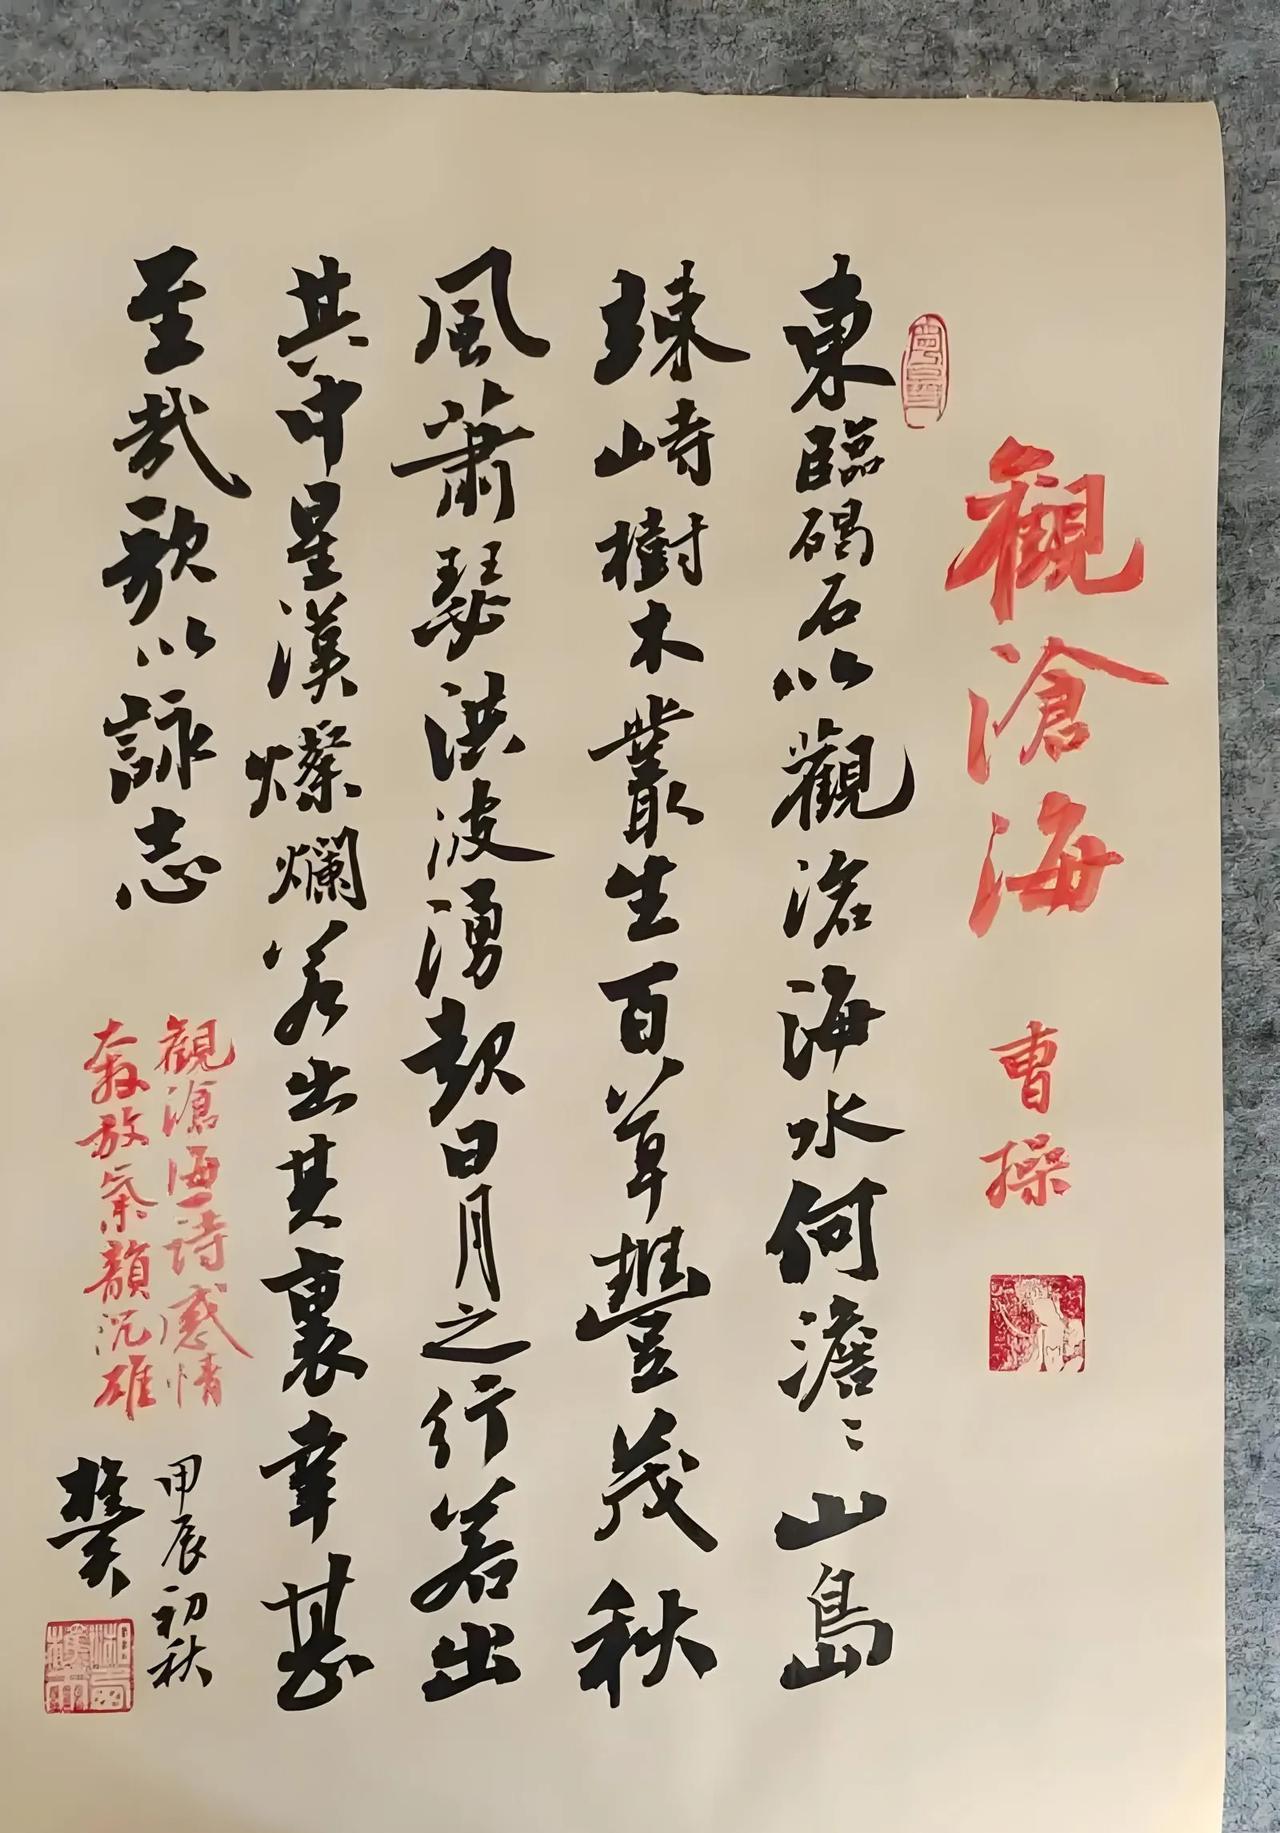 觀滄海
曹操
東臨碣石以觀滄海水何澹〻山島
竦峙樹木叢生百草豐茂秋
風蕭瑟洪波湧起日月之行若出
其中星漢燦爛若出其裏幸甚
至哉歌以詠志
觀滄海詩感情
奔放氣韻沉雄
甲辰初秋